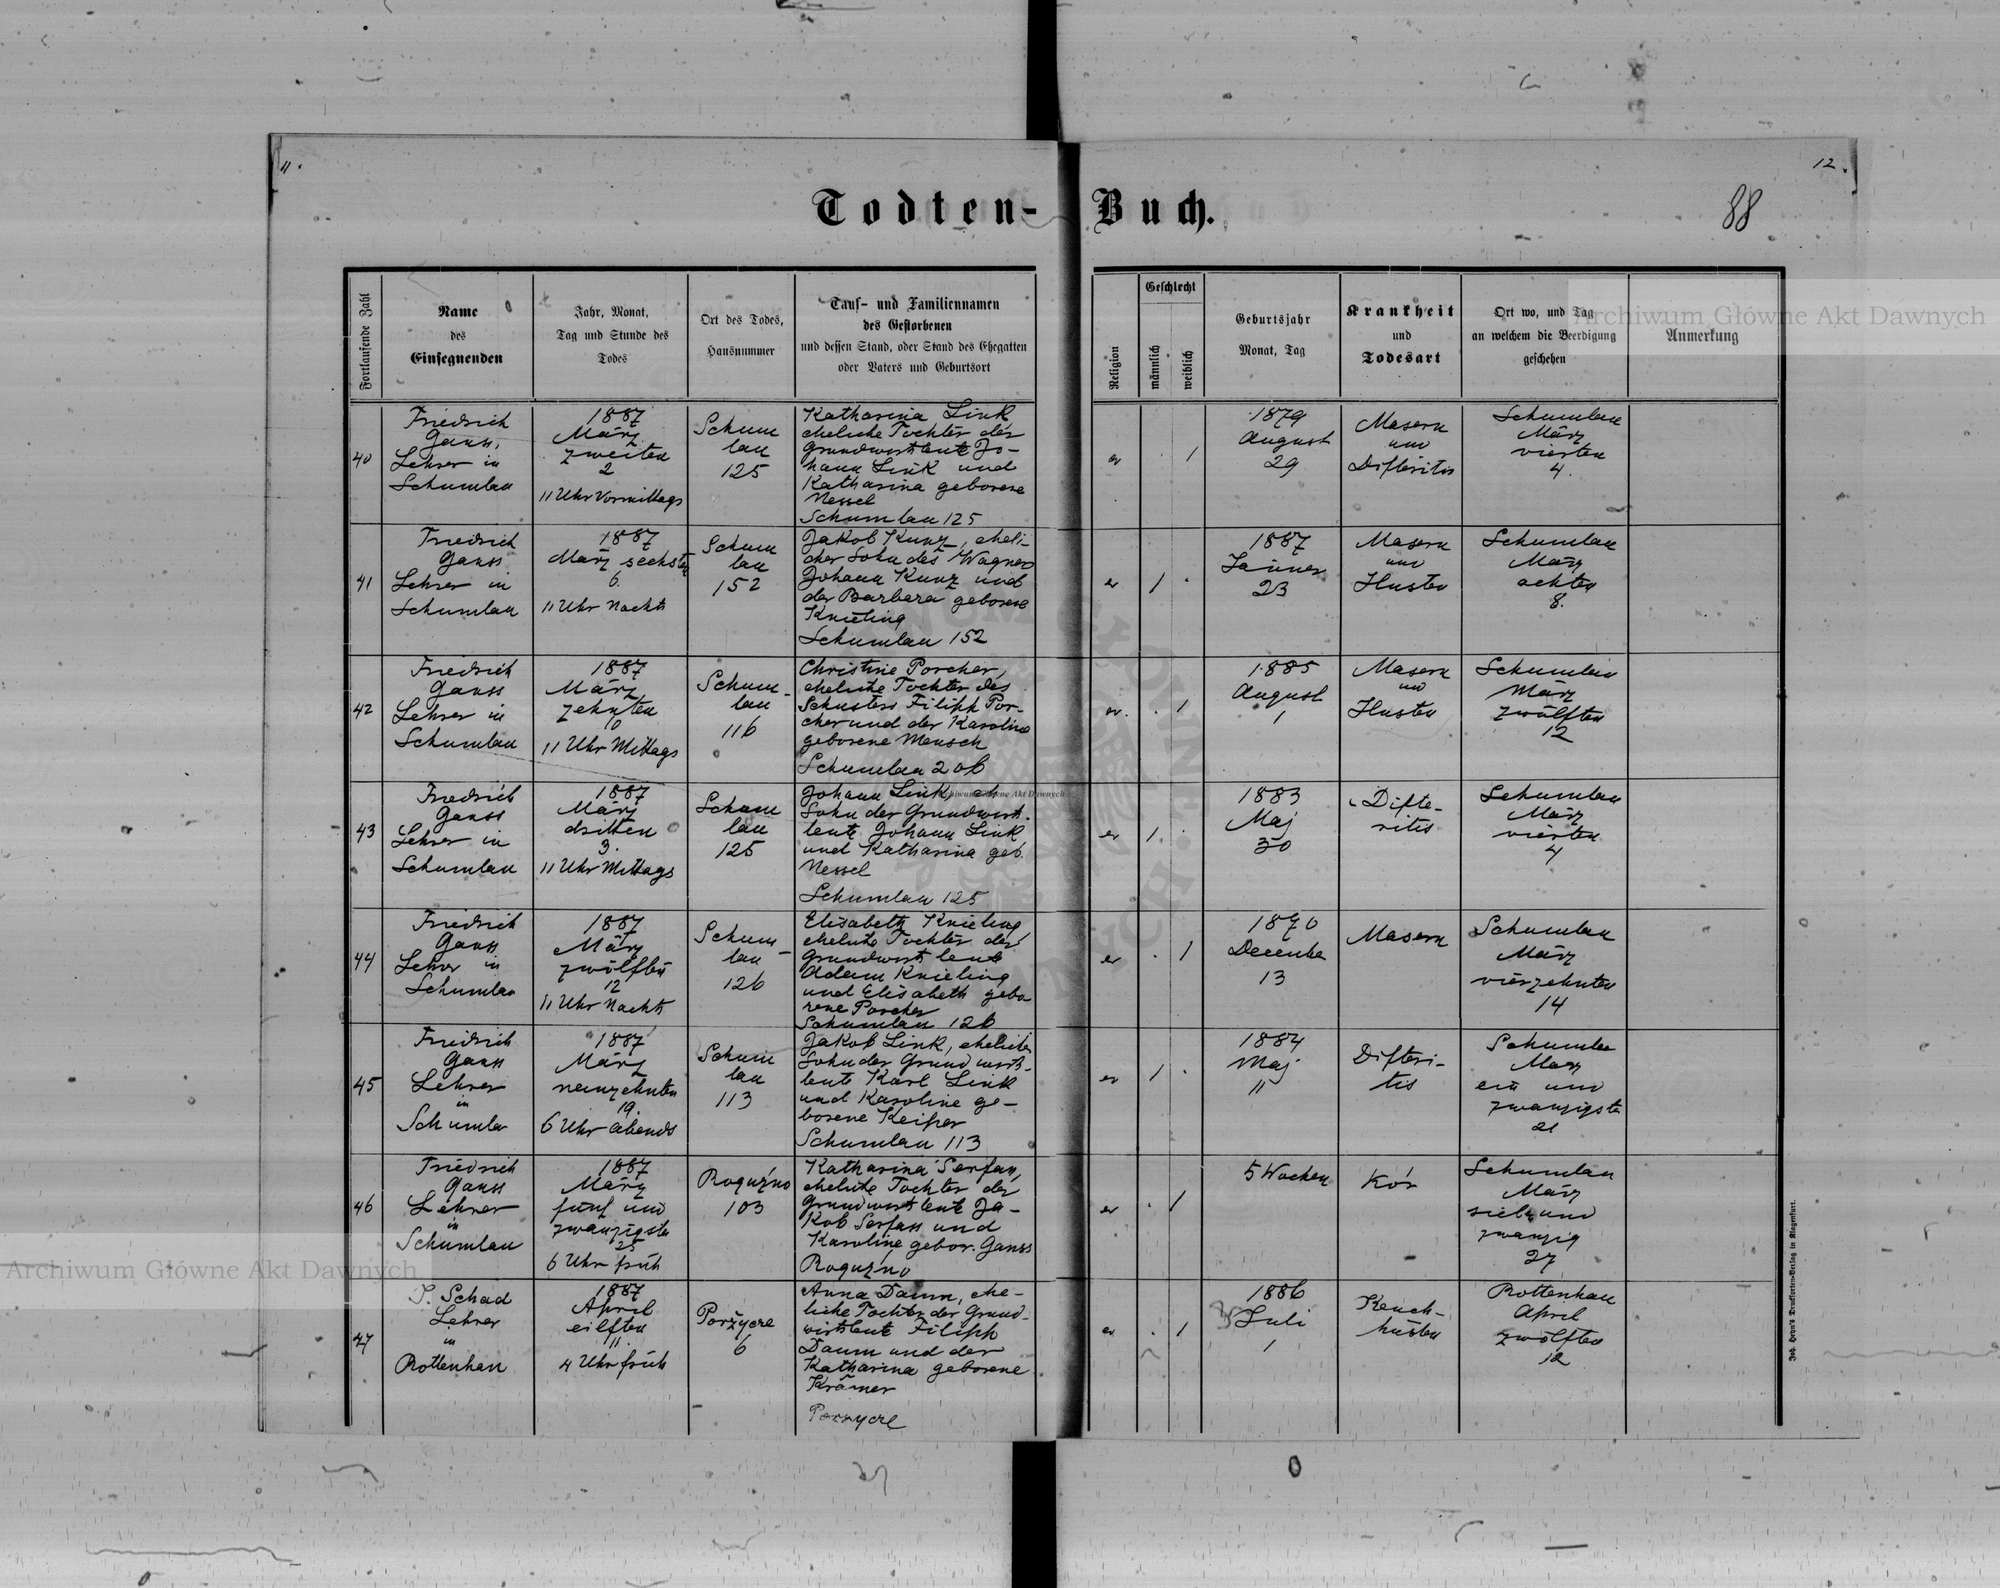 11.
12.
88
Todten-Buch.
Fortlaufende Zahl
Name
des
Einsegnenden
Jahr, Monat,
Tag und Stunde des
Todes
Ort des Todes,
Hausnummer
Tauf- und Familiennamen
des Gestorbenen
und dessen Stand, oder Stand des Ehegatten
oder Vaters und Geburtsort
Religion
Geschlecht
männlich
weiblich
Geburtsjahr
Monat, Tag
Krankheit
und
Todesart
Ort wo, und Tag
an welchem die Beerdigung
geschehen
Anmerkung
Archiwum Główne Akt Dawnych
40
Friedrich
Ganss,
Lehrer in
Schumlau
1887
März
zweiten
2
11 Uhr Vormittags
Schum
lau
125
Katharina Link
eheliche Tochter der
Grundwirtsleute Jo-
hann Link und
Katharina geborene
Nessel
Schumlau 125
ev
1
1879
August
29
Masern
und
Difteritis
Schumlau
März
vierten
4.
41
Friedrich
Ganss
Lehrer in
Schumlau
1887
März sechsten
6.
11 Uhr Nachts
Schum
lau
152
Jakob Kunz, eheli-
cher Sohn des Wagners
Johann Kunz und
der Barbara geborene
Knieling
Schumlau 152
ev
1
1887
Jänner
23
Masern
und
Husten
Schumlau
März
achten
8.
42
Friedrich
Ganss
Lehrer in
Schumlau
1887
März
zehnten
10
11 Uhr Mittags
Schum-
lau
116
Christine Porcher,
eheliche Tochter des
Schusters Filipp Por-
cher und der Karolina
geborene Mensch
Schumlau 206
ev.
1
1885
August
1
Masern
und
Husten
Schumlau
März
zwölften
12
43
Friedrich
Ganss
Lehrer in
Schumlau
1887
März
dritten
3.
11 Uhr Mittags
Schum
lau
125
Johann Link, eh
Sohn der Grundwirts-
leute Johann Link
und Katharina geb.
Nessel
Schumlau 125
ev
1
1883
Maj
30
Difte-
ritis
Schumlau
März
vierten
4
44
Friedrich
Ganss
Lehrer in
Schumlau
1887
März
zwölften
12
11 Uhr Nachts
Schum-
lau
126
Elisabeth Knieling,
eheliche Tochter der
Grundwirtsleute
Adam Knieling
und Elisabeth gebo
rene Porcher
Schumlau 126
ev
1
1870
December
13
Masern
Schumlau
März
vierzehnten
14
45
Friedrich
Ganss
Lehrer
in
Schumlau
1887
März
neunzehnten
19.
6 Uhr Abends
Schum
lau
113
Jakob Link, ehelicher
Sohn der Grundwirts-
leute Karl Link
und Karoline ge-
borene Keiper
Schumlau 113
ev
1
1884
Maj
11
Difteri-
tis
Schumlau
März
ein und
zwanzigsten
21
46
Friedrich
Ganss
Lehrer
in
Schumlau
1887
März
fünf und
zwanzigsten
25
6 Uhr früh
Roguźno
103
Katharina Serfass,
eheliche Tochter der
Grundwirtsleute Ja-
kob Serfass und
Karoline gebor. Ganss
Roguźno
ev
1
5 Wochen
Kór
Schumlau
März
sieben und
zwanzig
27
47
J. Schad
Lehrer
in
Rottenhan
1887
April
eilften
11.
4 Uhr früh
Porżycze
6
Anna Daum, ehe-
liche Tochter der Grund-
wirtsleute Filipp
Daum und der
Katharina geborene
Krämer
Porzycze
ev
1
1886
Juli
1
Keuch-
husten
Rottenhan
April
zwölften
12
Joh. Heyn's Drucksorten-Verlag in Klagenfurt.
Archiwum Główne Akt Dawnych